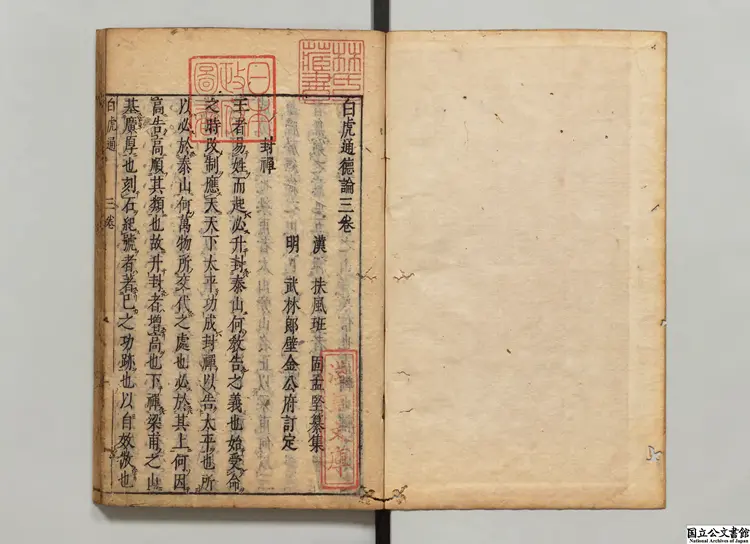 白虎通德論三卷
漢 扶風班 固孟堅纂集
明 武林郎璧金公府訂定
封禪
王者易姓而起必升封泰山何教告之義也始受命
之時改制應天天下太平功成封禪以告太平也所
以必於泰山何萬物所交代之處也必於其上何因
高告高順其類也故升封者增高也下禪梁甫之山
基廣厚也刻石紀號者著己之功跡也以自效倣也
白虎通 三卷
林氏藏書
日本政府圖書
國立公文書館
National Archives of Japan